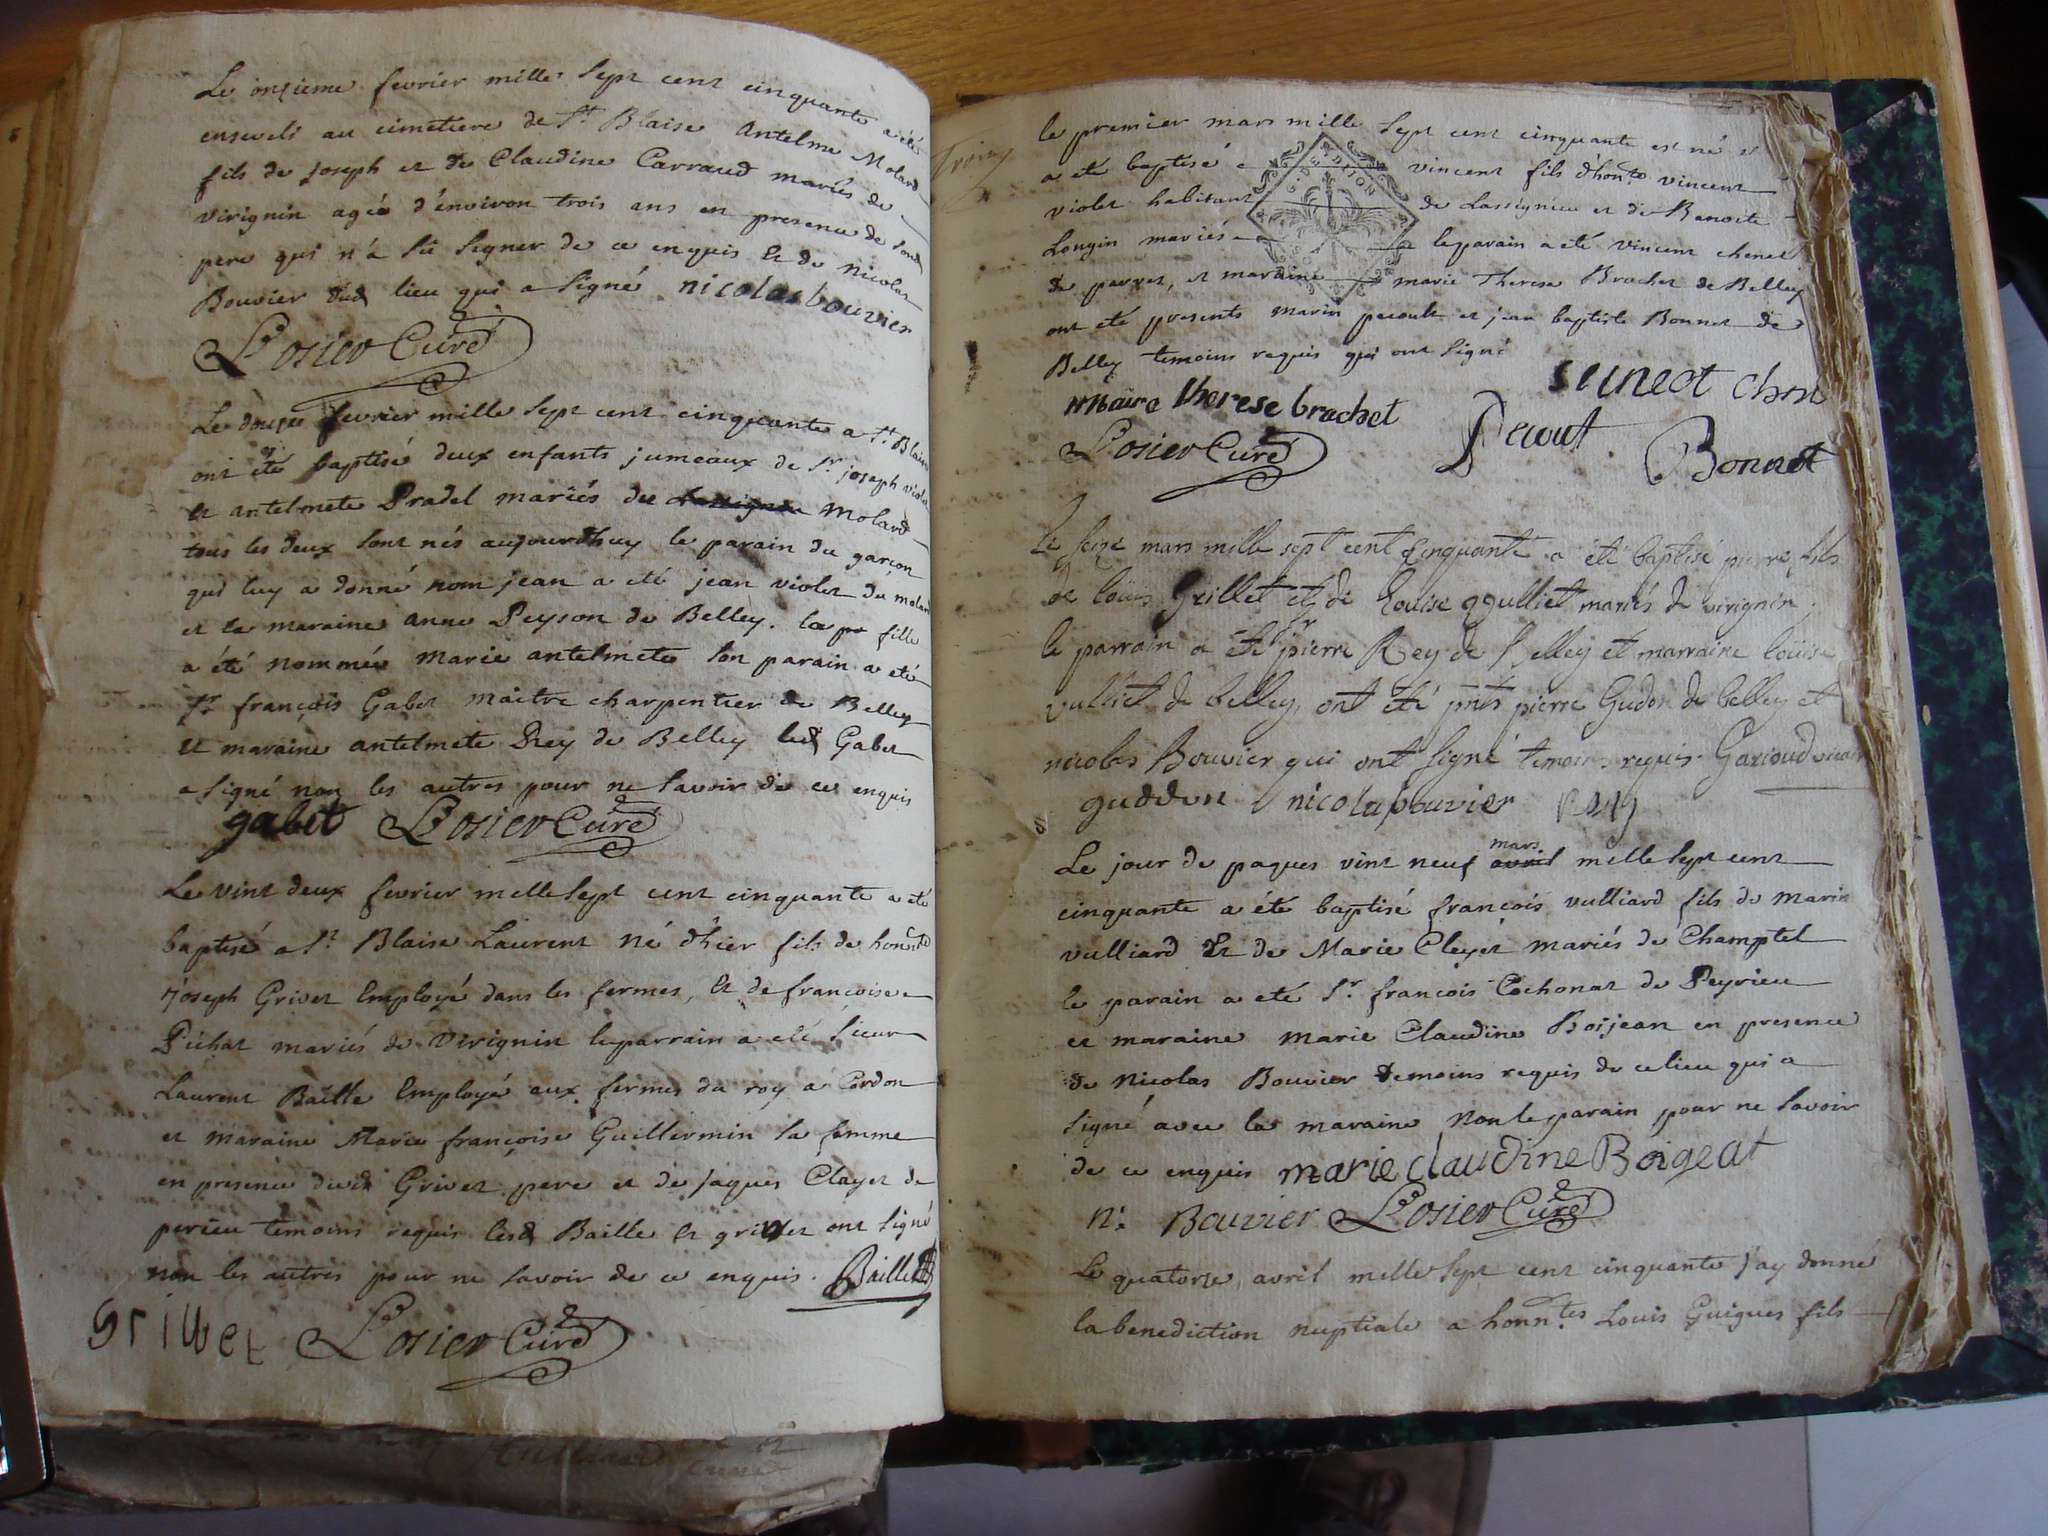 Le onzieme fevrier mille sept cent cinquante a été
enseveli au cimetiere de St Blaise Antelme Molard
fils de joseph et de Claudine Carraud mariés de
virignin agée d'énviron trois ans en presence de
pere qui n'à sû signer de ce enquis et de nicolas
Bouvier dud lieu qui a signé nicolas bouvier
Losier Curé
Le douze fevrier mille sept cent cinquante a St Blaise
ont été baptisé deux enfants jumeaux de Sr joseph violet
et antelmete Pradel mariés de Molard
tous les deux sont nés aujourdhuy le parain du garçon
qui luy a donné nom jean a eté jean violet du molard
et la maraine anne Peyson de Belley. la fille
a été nommée marie antelmete son parain a eté
Sr françois Gabet maitre charpentier de Belley
et maraine antelmete Rey de Belley led Gabet
a signé non les autres pour ne savoir de ce enquis
gabet Losier Curé
Le vint deux fevrier mille sept cent cinquante a eté
baptisé a St Blaise Laurent né d'hier fils de honnste
joseph Grivet Employé dans les fermes, Et de francoise
Pichat mariés de Virignin le parrain a eté sieur
Laurent Baille Employé aux fermes du roy a Cordon
et maraine Marie françoise Guillermin sa femme
en presence dudt Grivet pere et de jaques Clayet de
perieu temoins requis lesd Baille et grivet ont signé
non les autres pour ne savoir de ce enquis. Baille
Griwet Losier Curé
le premier mars mille sept cent cinquante est né et
a eté baptisé vincent fils d'honte vincent
violet habitant de Lassignieu et de Benoite
Longin mariés le parain a eté vincent chenet
de parves, et maraine marie Therese Brachet de Belley
ont eté presents marin pecoult et jean baptiste Bonnet de
Belley temoins requis qui ont signé
maire therese brachet Pecout
Losier Curé Bonnet
Le seize mars mille sept cent cinquante a été baptisé pierre fils
de louis Grillet et de Louise vulliet mariés de virignin
le parrain a été Sr pierre Rey de Belley et marraine louise
vulliet de belley, ont eté pnts pierre Gudon de belley et
nicolas Bouvier qui ont signé temoins requis Garioud vicaire
guddon nicola bouvier
Le jour de paques vint neuf mars avril mille sept cent
cinquante a été baptisé françois vulliard fils de Marin
vulliard Et de Marie Cleyet mariés de Champtel
le parain a eté Sr. françois Cochonat de Peyrieu
et maraine marie Claudine Boijean en presence
de Nicolas Bouvier temoins requis de ce lieu qui a
signé avec la maraine non le parain pour ne savoir
de ce enquis marie claudine Boigeat
n: Bouvier Losier Curé
Le quatorze avril mille sept cent cinquante j'ay donné
la benediction nuptiale a honntes Louis Guigues fils